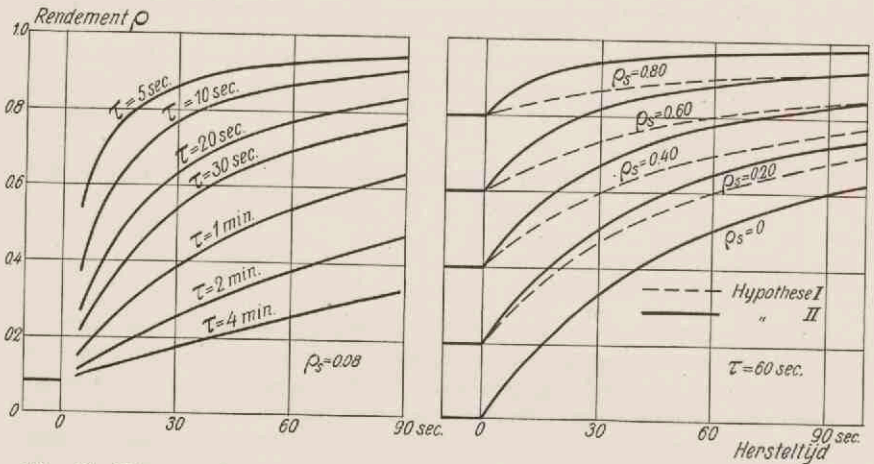 Rendement ρ
1.0
0.8
0.6
0.4
0.2
0
τ=5 sec.
τ=10 sec.
τ=20 sec.
τ=30 sec.
τ=1 min.
τ=2 min.
τ=4 min.
ρs=0.08
0
30
60
90 sec.
ρs=0.80
ρs=0.60
ρs=0.40
ρs=0.20
ρs=0
Hypothese I
„ II
τ=60 sec.
0
30
60
90 sec.
Hersteltijd